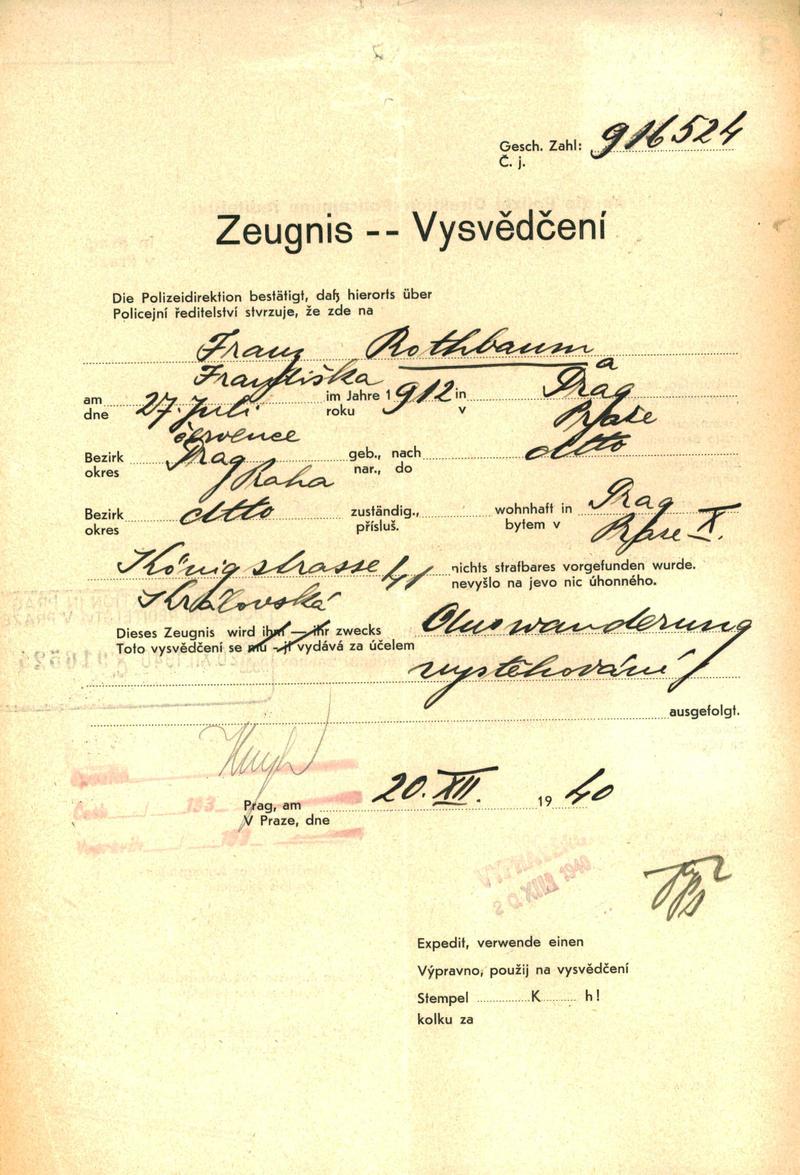 Gesch. Zahl: 916524
Č. j.
Zeugnis -- Vysvědčení
Die Polizeidirektion bestätigt, daß hierorts über
Policejní ředitelství stvrzuje, že zde na
Franz Rothbaum
Františka a
am 27. Juli im Jahre 1912 in Prag
dne července roku v Praze
Bezirk Prag geb., nach dtto
okres Praha nar., do
Bezirk dtto zuständig., wohnhaft in Prag
okres přísluš. bytem v Praze X.
Königstrasse 41 nichts strafbares vorgefunden wurde.
Královská nevyšlo na jevo nic úhonného.
Dieses Zeugnis wird ihm — ihr zwecks Auswanderung
Toto vysvědčení se mu - jí vydává za účelem
vystěhování
ausgefolgt.
Prag, am 20. XII. 1940
V Praze, dne
Expedit, verwende einen
Výpravno, použij na vysvědčení
Stempel K h!
kolku za